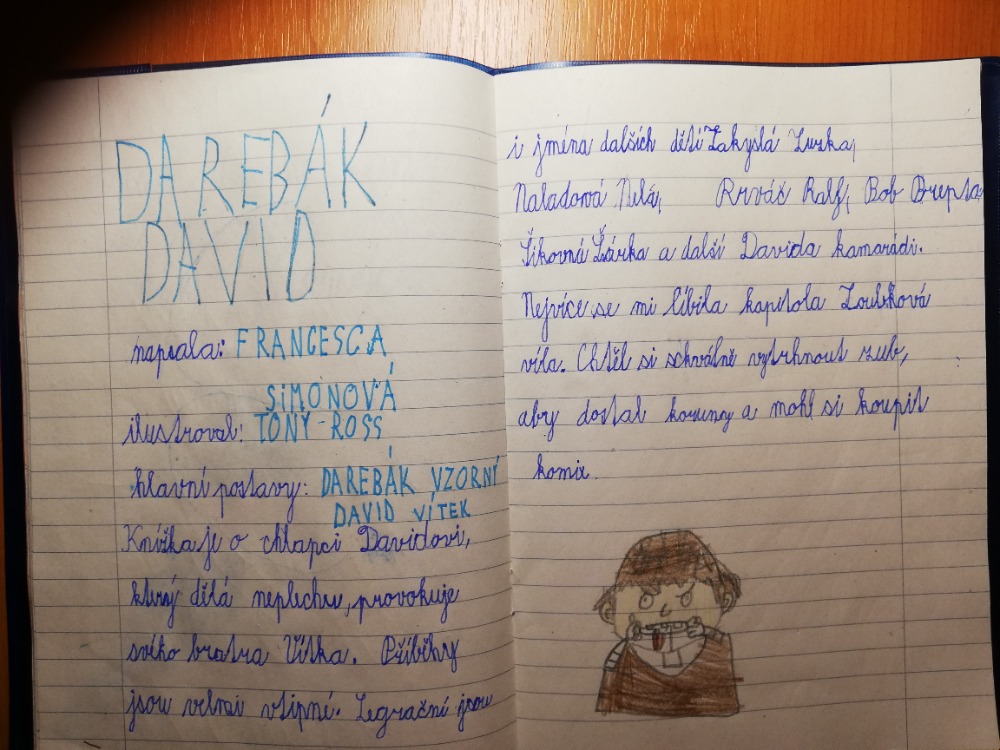 DAREBÁK
DAVID
napsala: FRANCESCA
SIMONOVÁ
ilustroval: TONY ROSS
hlavní postavy: DAREBÁK VZORNÝ
DAVID VÍTEK
Knížka je o chlapci Davidovi,
který dělá neplechu, provokuje
svého bratra Vítka. Příběhy
jsou velmi vtipné. Legrační jsou
i jména dalších dětí Zakyslá Zuzka,
Náladová Nela, Rrváč Ralf, Bob Brepta
Šikovná Šárka a další Davida kamarádi.
Nejvíce se mi líbila kapitola Zoubková
víla. Chtěl si schválně vytrhnout zub,
aby dostal koruny a mohl si koupit
komix.